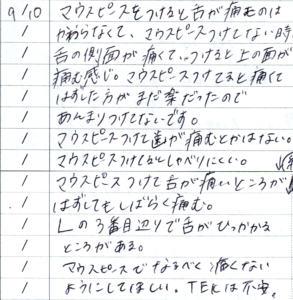 9/10 マウスピースをつけると舌が痛むのは
かわらなくて、マウスピースつけてない時
舌の側面が痛くて、つけると上の面が
痛む感じ。マウスピースつけてると痛くて
はずした方がまだ楽だったので
あんまりつけてないです。
マウスピースつけて歯が痛むとかはない。
マウスピースつけるとしゃべりにくい。
マウスピースつけて舌が痛いところが
はずしてもしばらく痛む。
Lの3番目辺りで舌がひっかかる
ところがある。
マウスピースでなるべく痛くない
ようにしてほしい。TEKは不安。